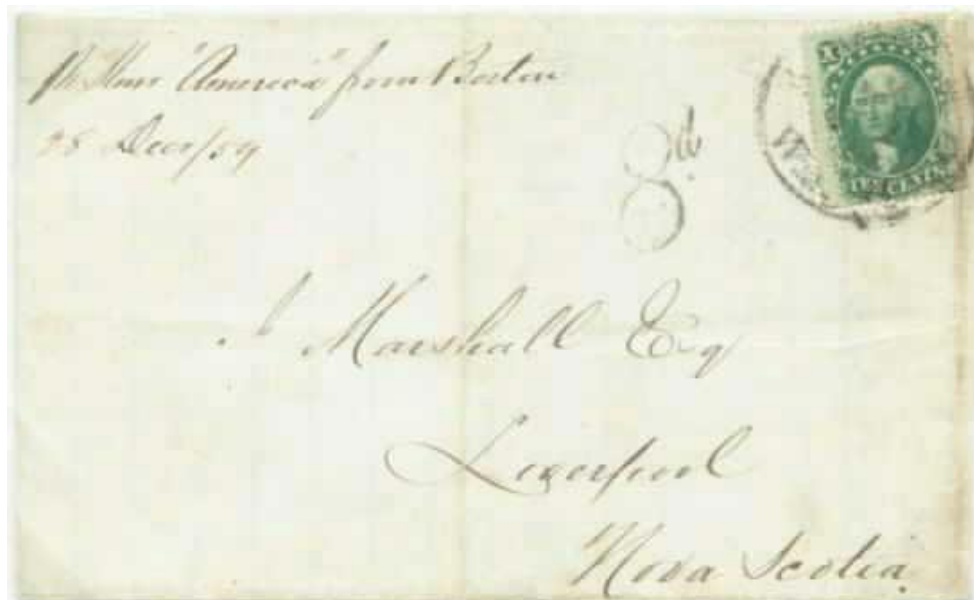 Pr Stmr "America" from Boston
28 Decr/59
8d
X X
TEN CENTS
J Marshall Esq
Liverpool
Nova Scotia